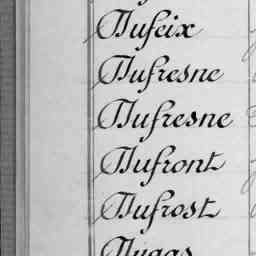 Dufeix
Dufresne
Dufresne
Dufront
Dufrost
Dugas